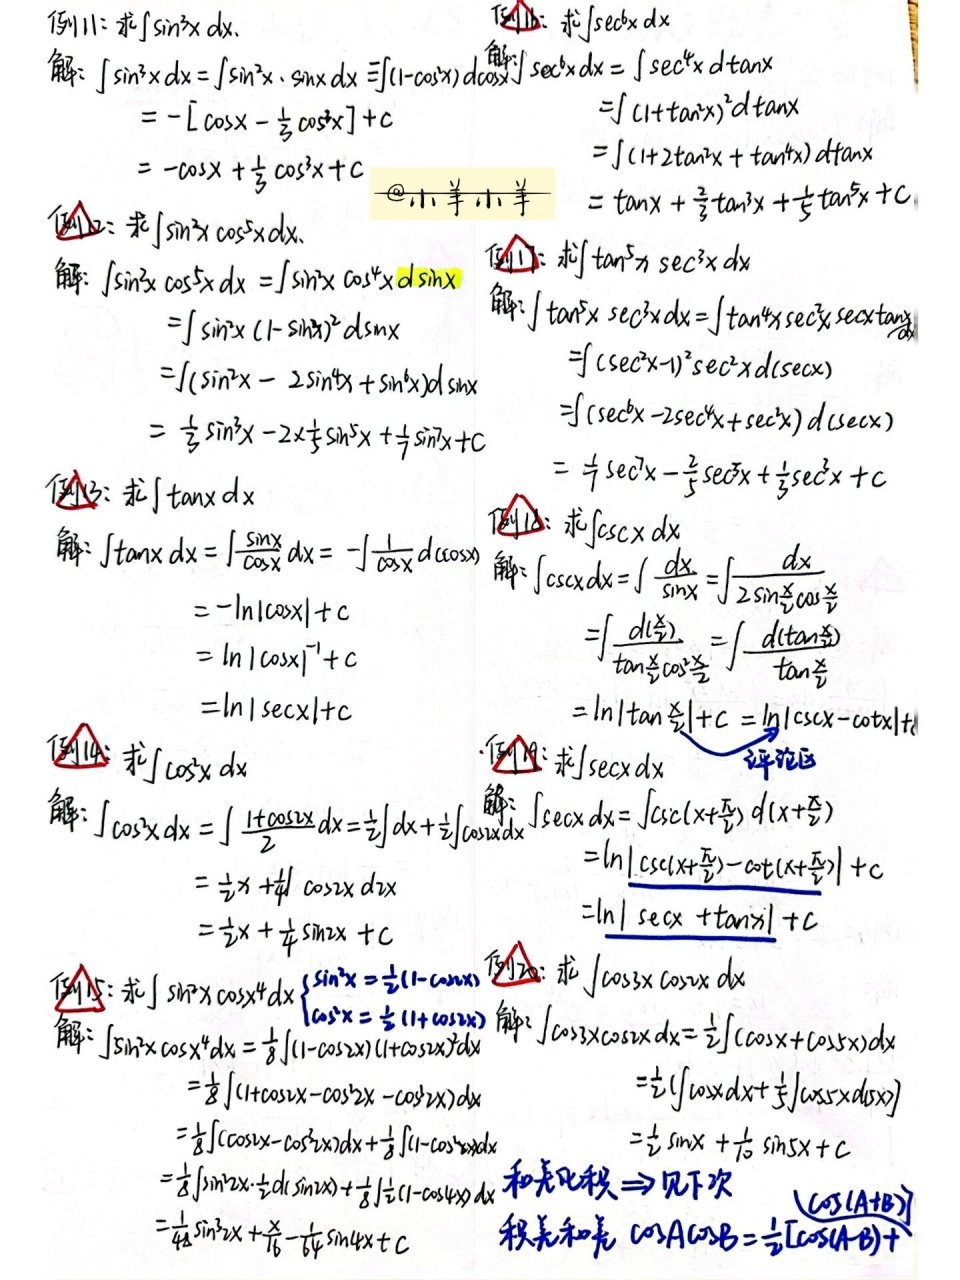 例11: 求∫sin³x dx.
解: ∫sin³x dx = ∫sin²x · sinx dx = -∫(1-cos²x) dcosx
= -[cosx - 1/3 cos³x] + C
= -cosx + 1/3 cos³x + C
@小羊小羊
例12: 求∫sin²x cos⁵x dx.
解: ∫sin²x cos⁵x dx = ∫sin²x cos⁴x d sinx
= ∫sin²x (1-sin²x)² dsinx
= ∫(sin²x - 2sin⁴x + sin⁶x) d sinx
= 1/3 sin³x - 2×1/5 sin⁵x + 1/7 sin⁷x + C
例13: 求∫tanx dx
解: ∫tanx dx = ∫ sinx/cosx dx = -∫ 1/cosx d(cosx)
= -ln|cosx| + C
= ln|cosx|⁻¹ + C
= ln|secx| + C
例14: 求∫cos²x dx
解: ∫cos²x dx = ∫ (1+cos2x)/2 dx = 1/2∫dx + 1/2∫cos2x dx
= 1/2 x + 1/4∫cos2x d2x
= 1/2 x + 1/4 sin2x + C
例15: 求∫sin²x cosx⁴ dx { sin²x = 1/2(1-cos2x)
cos²x = 1/2(1+cos2x)
解: ∫sin²x cosx⁴ dx = 1/8∫(1-cos2x)(1+cos2x)² dx
= 1/8∫(1+cos2x-cos²2x-cos³2x) dx
= 1/8∫(cos2x-cos³2x) dx + 1/8∫(1-cos²2x) dx
= 1/8∫sin²2x · 1/2 d(sin2x) + 1/8∫1/2(1-cos4x) dx
= 1/48 sin³2x + x/16 - 1/64 sin4x + C
例16: 求∫sec⁶x dx
解: ∫sec⁶x dx = ∫sec⁴x dtanx
= ∫(1+tan²x)² dtanx
= ∫(1+2tan²x + tan⁴x) dtanx
= tanx + 2/3 tan³x + 1/5 tan⁵x + C
例17: 求∫tan⁵x sec³x dx
解: ∫tan⁵x sec³x dx = ∫tan⁴x sec²x secx tanx dx
= ∫(sec²x-1)² sec²x d(secx)
= ∫(sec⁶x - 2sec⁴x + sec²x) d(secx)
= 1/7 sec⁷x - 2/5 sec⁵x + 1/3 sec³x + C
例18: 求∫cscx dx
解: ∫cscx dx = ∫ dx/sinx = ∫ dx/(2sin x/2 cos x/2)
= ∫ d(x/2)/(tan x/2 cos² x/2) = ∫ d(tan x/2)/(tan x/2)
= ln|tan x/2| + C = ln|cscx - cotx| + C
评论区
例19: 求∫secx dx
解: ∫secx dx = ∫csc(x+π/2) d(x+π/2)
= ln|csc(x+π/2) - cot(x+π/2)| + C
= ln|secx + tanx| + C
例20: 求∫cos3x cos2x dx
解: ∫cos3x cos2x dx = 1/2∫(cosx + cos5x) dx
= 1/2(∫cosx dx + 1/5∫cos5x d(5x))
= 1/2 sinx + 1/10 sin5x + C
和差化积 ⇒ 见下次
积差和差 cosAcosB = 1/2[cos(A-B) + cos(A+B)]